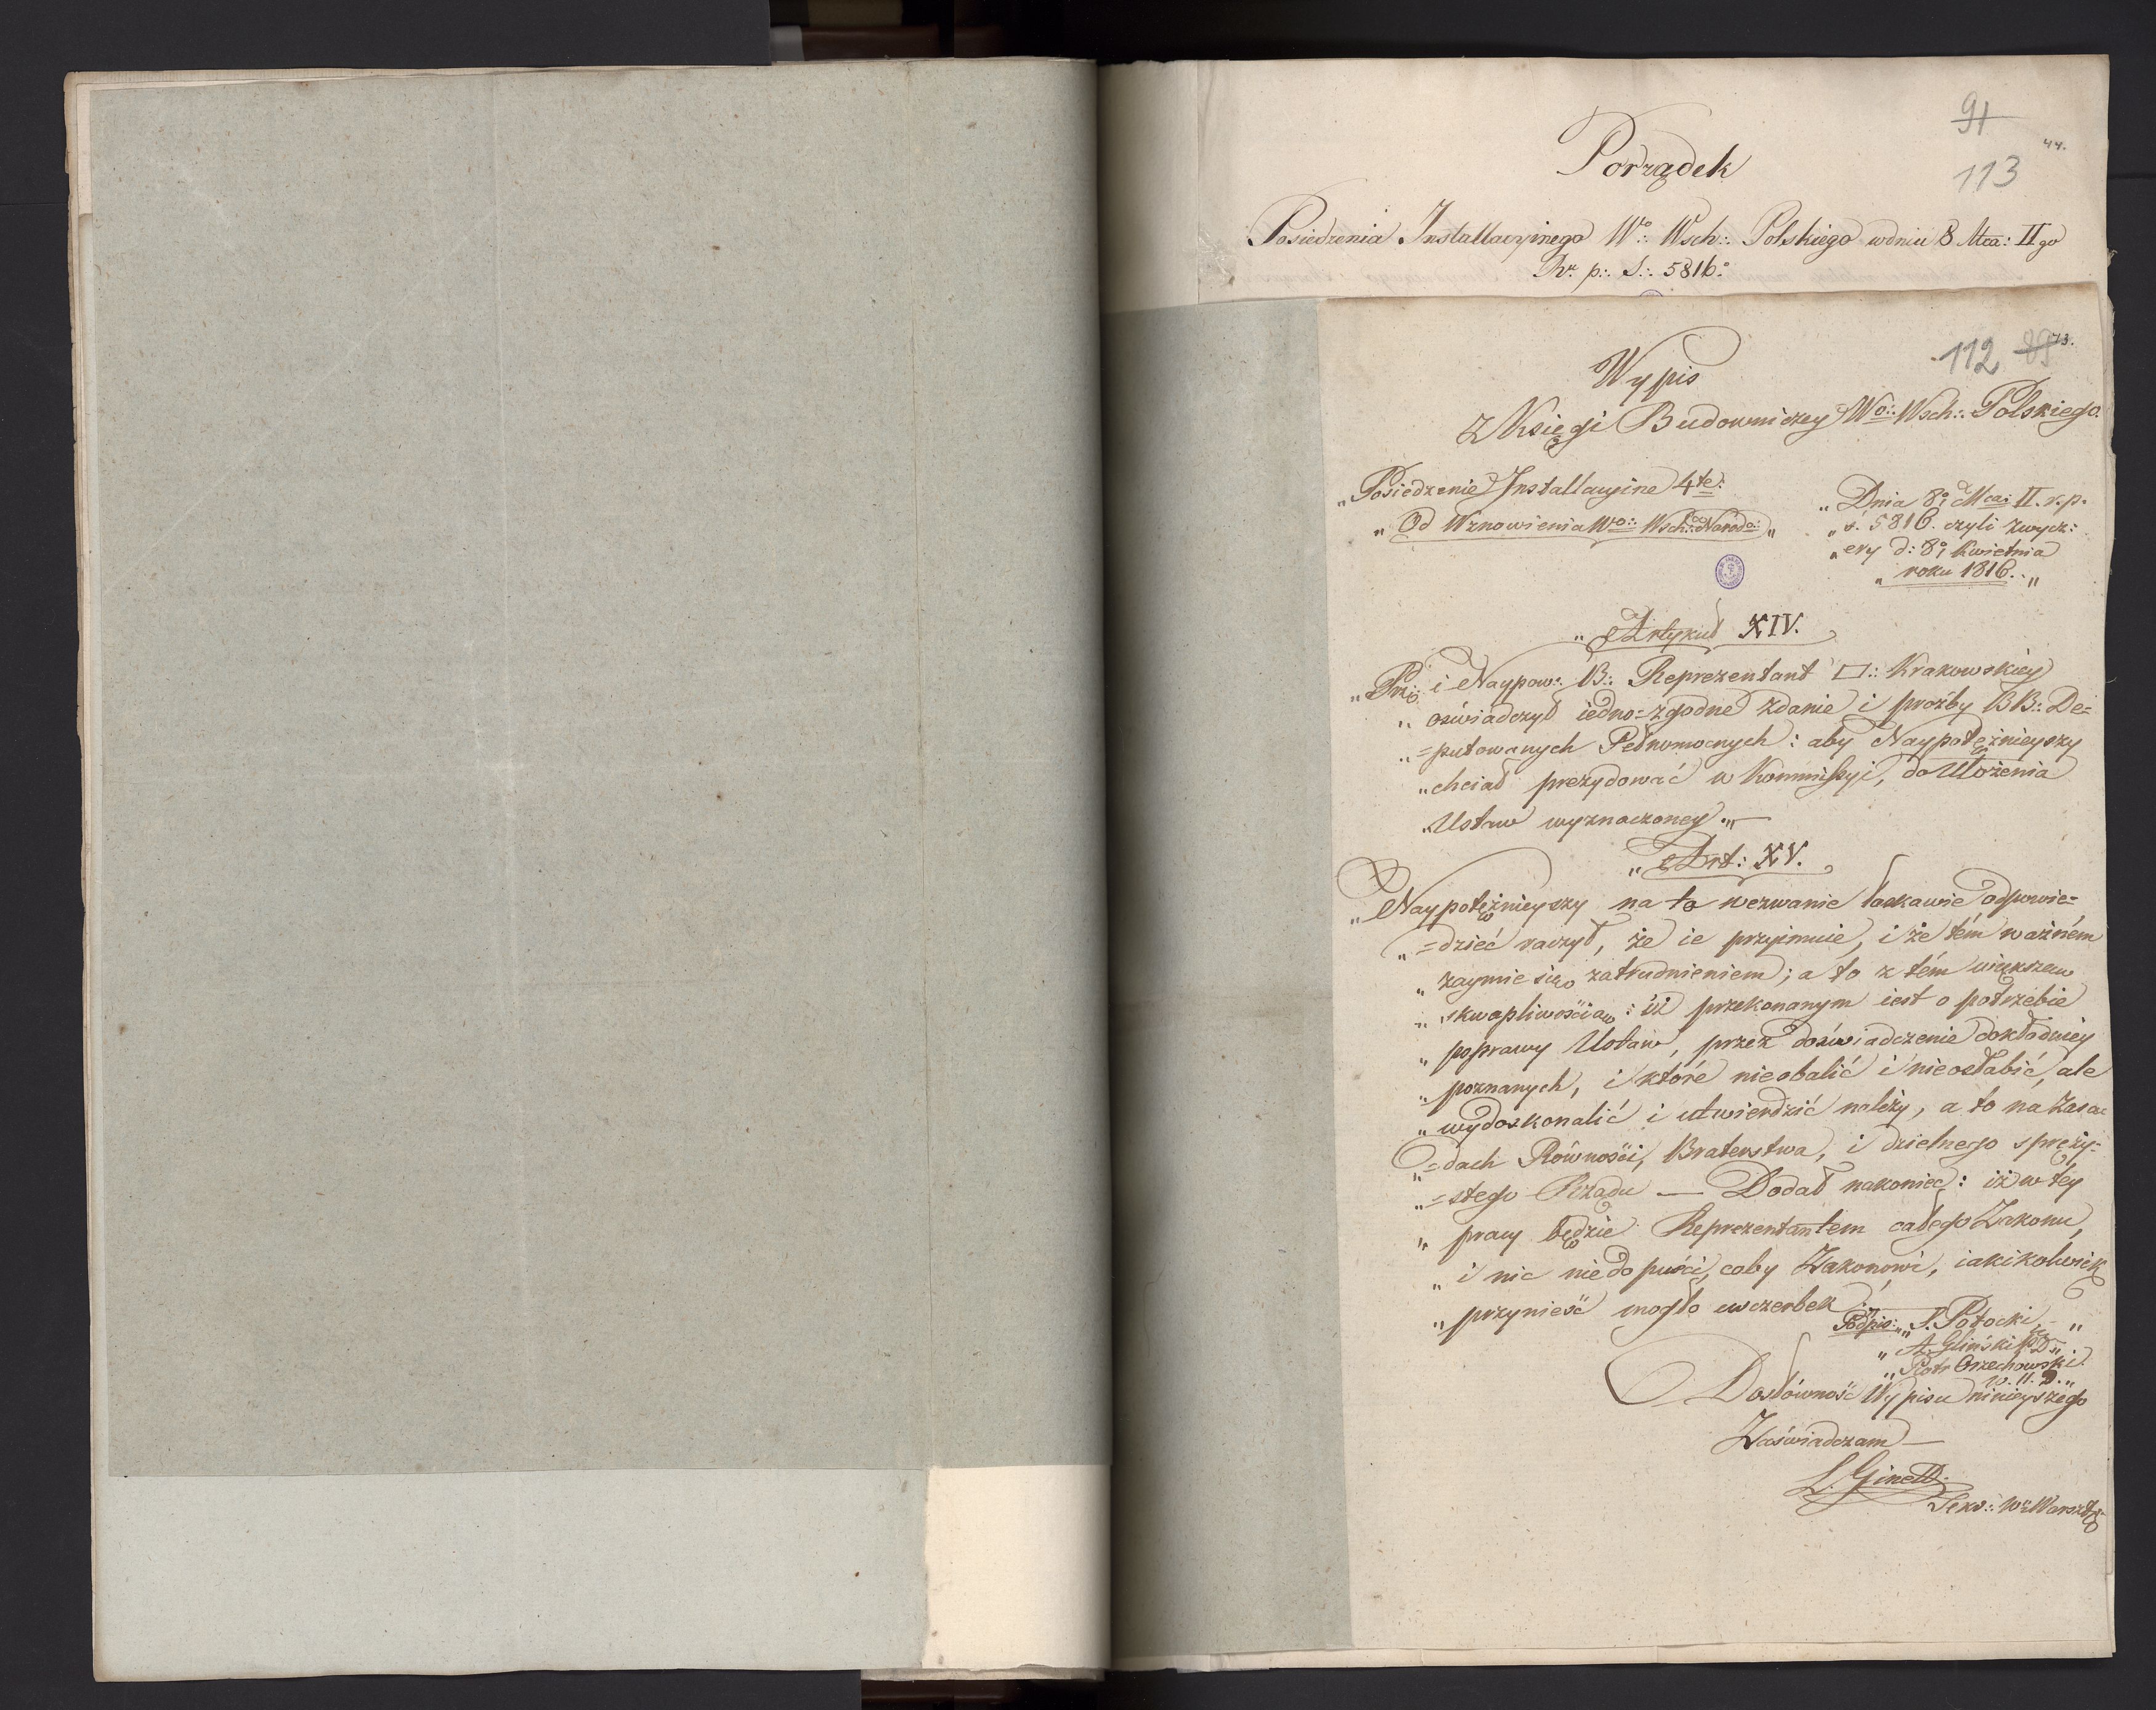 91
44.
113
Porządek
Posiedzenia Installacyinego Wo:. Wsch:. Polskiego w dniu 8 Mca: II go
Rr. p:. S:. 5816.
112 89 73.
Wypis
z Księgi Budowniczey Wo:. Wsch:. Polskiego.
„Posiedzenie Installacyine 4te.
„Od Wznowienia Wo:. Wsch:. Narodo: „
„Dnia 8o; Mca: II. r. p.
„ś. 5816. czyli zwycz:
„ery d: 8o; Kwietnia
„roku 1816. „
„Artykuł XIV.
„Prz: i Naypow:. B:. Reprezentant □:. Krakowskiey
„oświadczył iedno=zgodne zdanie i proźby BB:. De=
„=putowanych Pełnomocnych: aby Naypotężnieyszy
„chciał prezydować w Kommissyi, do Ułożenia
„Ustaw wyznaczoney.„
„Art: XV.
„Naypotężnieyszy na to wezwanie łaskawie odpowie=
„=dzieć raczył, że ie przyimuie, i że tém ważném
„zaymie się zatrudnieniem; a to z tém większą
„skwapliwością: iż przekonanym iest o potrzebie
„poprawy Ustaw, przez doświadczenie dokładniey
„poznanych, i które nieobalić i nieosłabić, ale
„wydoskonalić i utwierdzić należy, a to na Zasa=
„=dach Równości, Braterstwa, i dzielnego spręży=
„=stego Rządu — Dodał nakoniec: iż w tey
„pracy będzie Reprezentantem całego Zakonu,
„i nic niedopuści, coby Zakonowi, iakikolwiek
„przynieść mogło uszczerbek.
Podpis: „S. Potocki „
„A. Gliński
„Piotr Orzechowski.
Dosłowność Wypisu ninieyszego
Zaświadczam —
L. Ginett
Sekr:. W:. Warszt: